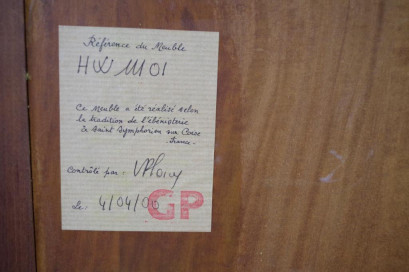 Référence du Meuble
HW 11101
Ce meuble a été réalisé selon
la tradition de l'ébénisterie
à Saint Symphorien sur Coise
France.
Contrôlé par :
Le : 4/04/00
GP